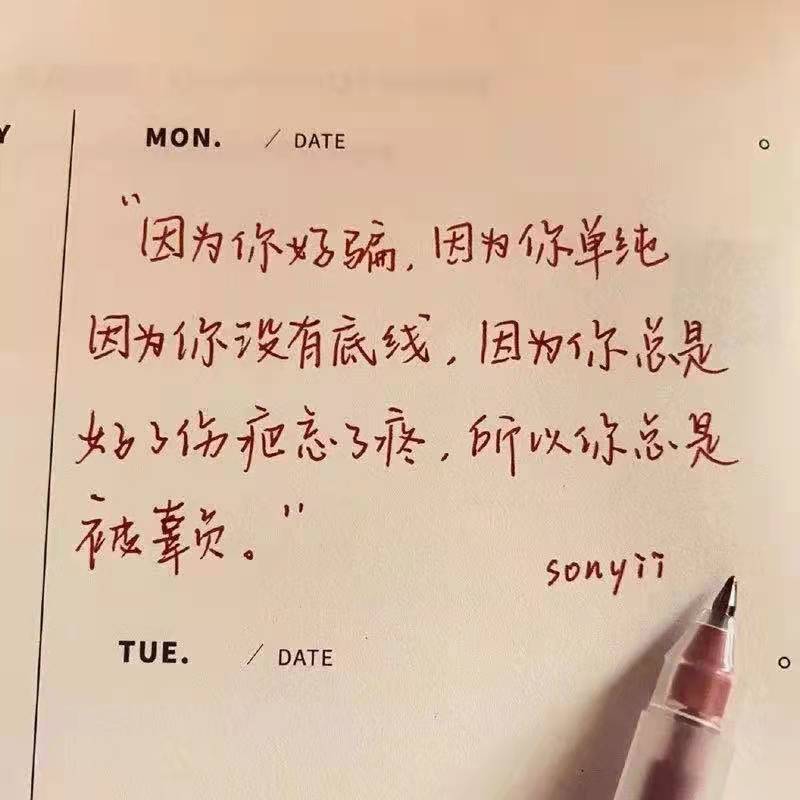 Y
MON. / DATE
“因为你好骗，因为你单纯
因为你没有底线，因为你总是
好了伤疤忘了疼，所以你总是
被辜负。”
sonyii
TUE. / DATE